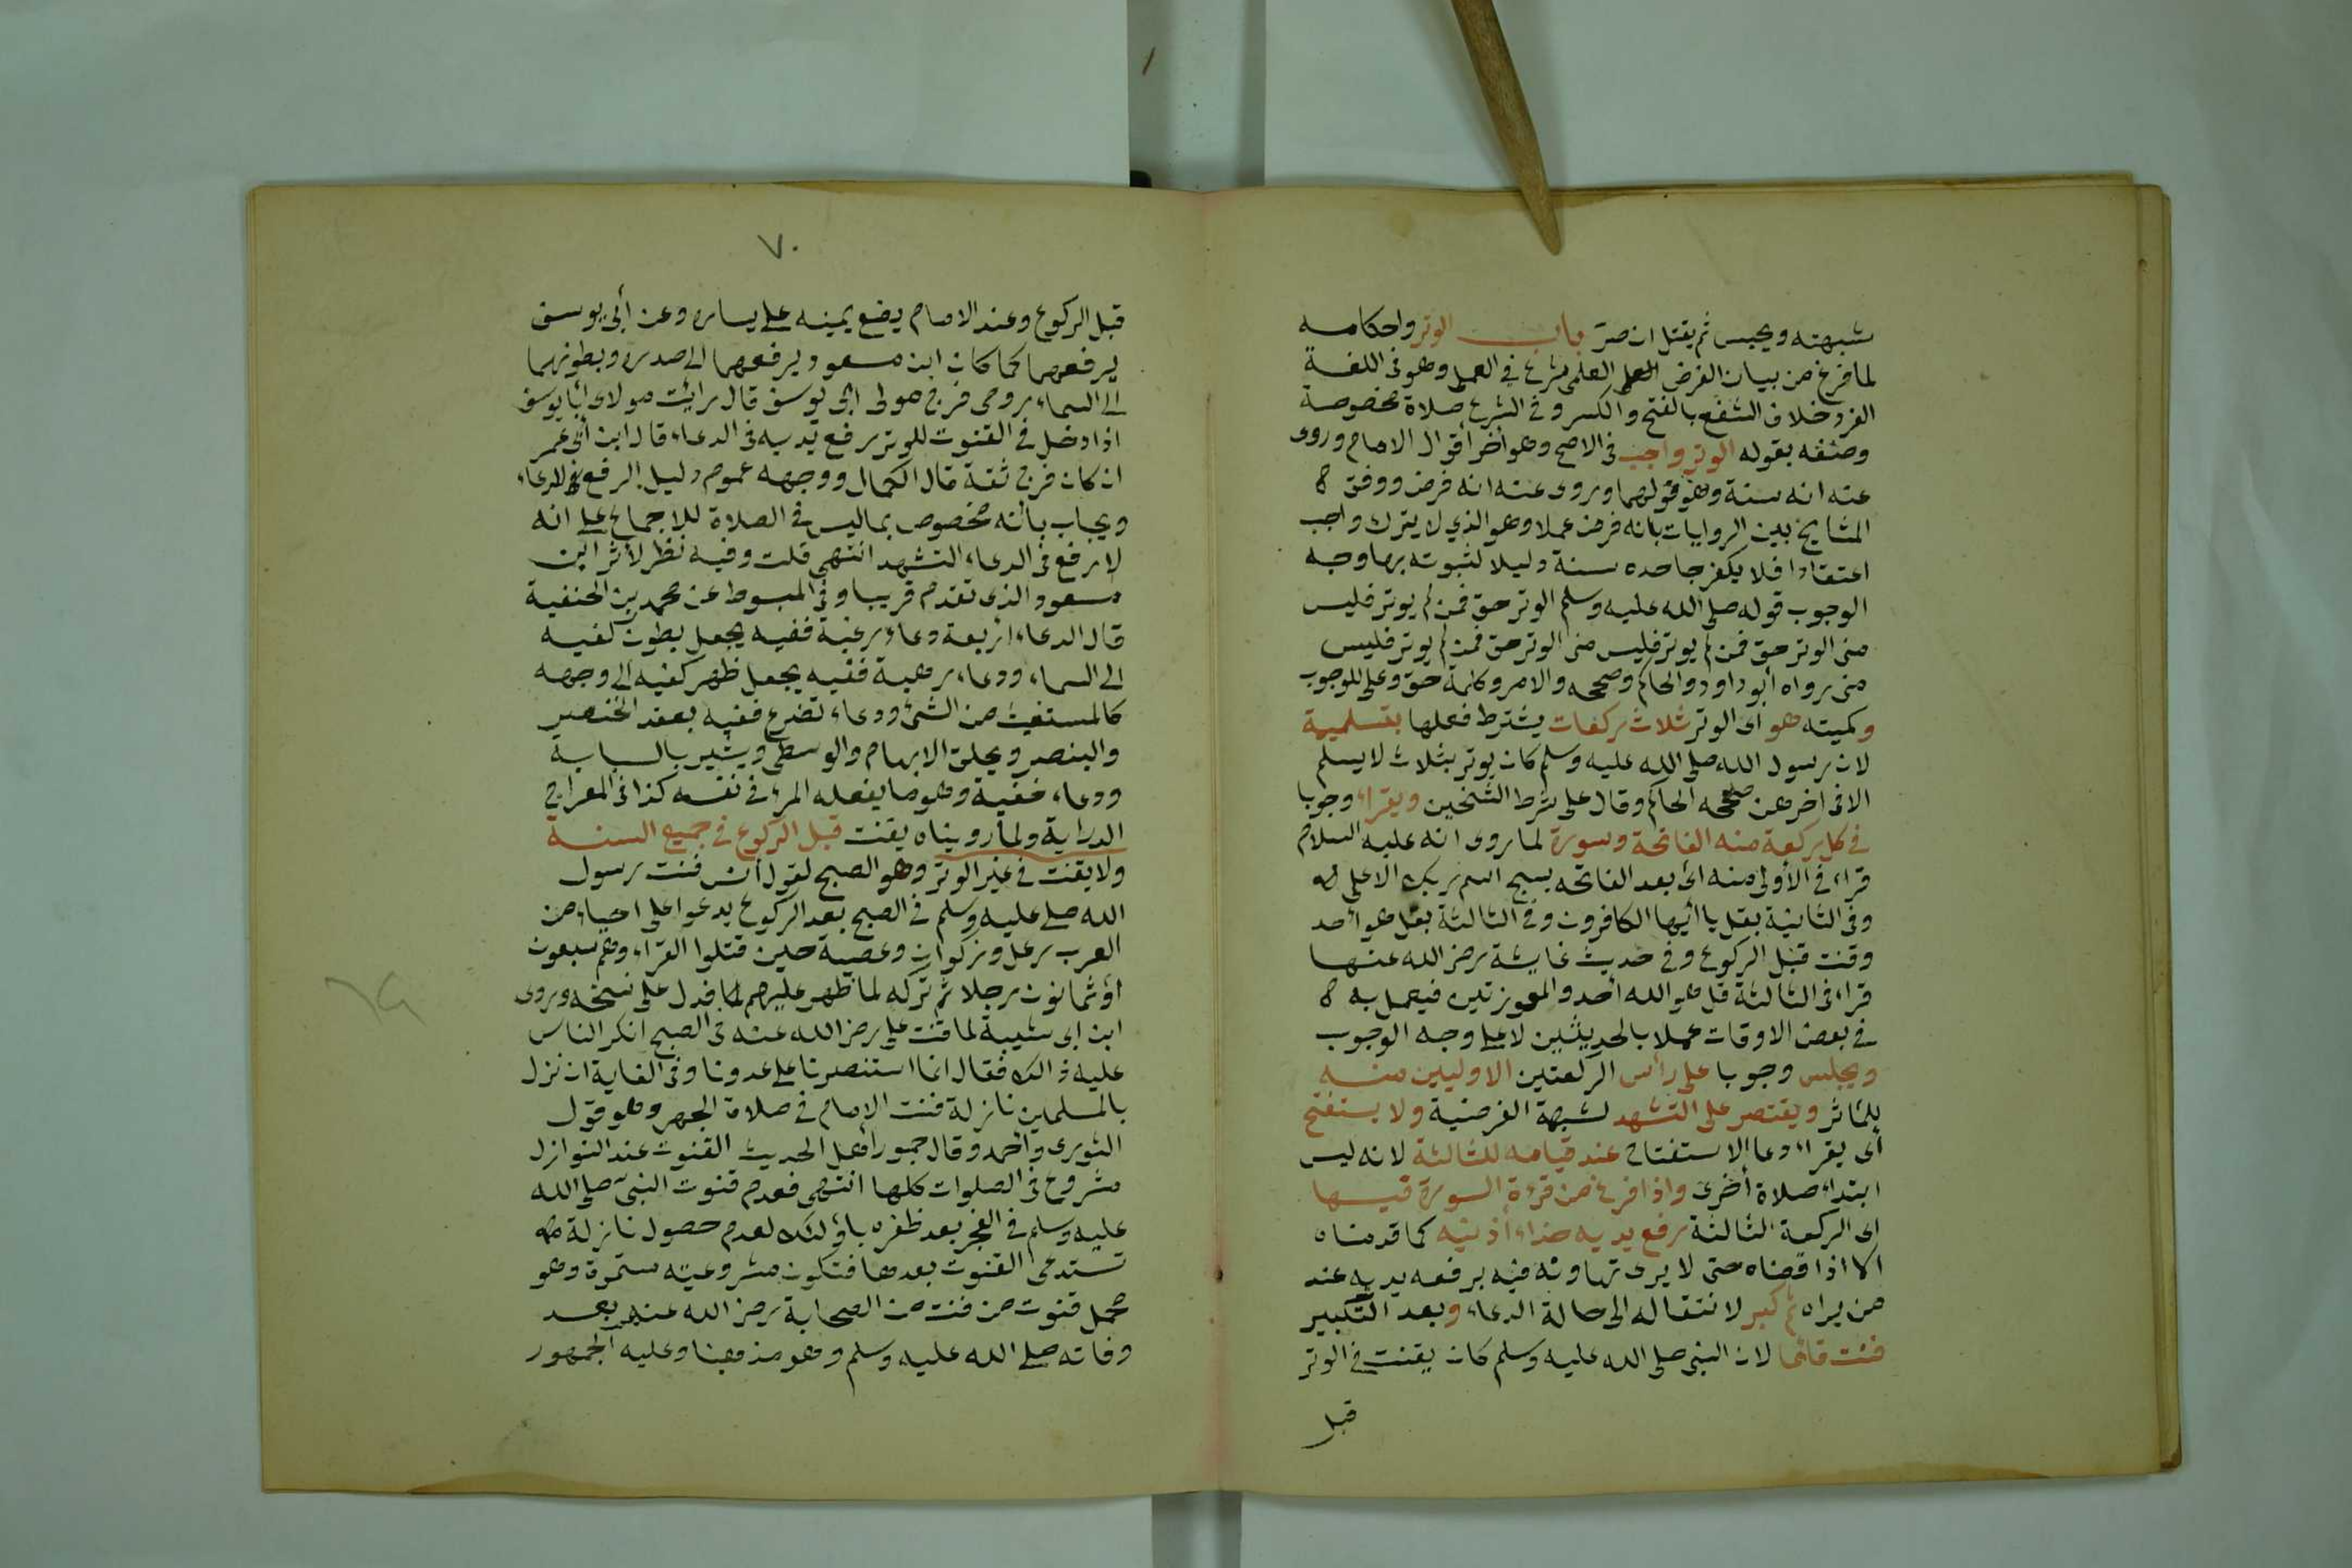 شبهته ويحبس ثم يقتل ان صرّ باب الوتر واحكامه
لما فرغ من بيان الفرض العلمى شرع فى العمل وهو فى اللغة
الفرد خلاف الشفع بالفتح والكسر وفى الشرع صلاة مخصوصة
وصفه بقوله الوتر واجب فى الاصح وهو أخر أقوال الامام وروى
عنه انه سنة وهو قولهما وروى عنه انه فرض ووفق
المشايخ بين الروايات بانه فرض عملا وهو الذي لا يترك واجب
اعتقادا فلا يكفر جاحده سنة دليلا لثبوته بها وجه
الوجوب قوله صلى الله عليه وسلم الوتر حق فمن لم يوتر فليس
منى الوتر حق فمن لم يوتر فليس منى الوتر حق فمن لم يوتر فليس
منى رواه أبو داود والحاكم وصححه والامر وكلمة حق وعلى للوجوب
وكميته هو اى الوتر ثلاث ركعات يشترط فعلها بتسليمة
لان رسول الله صلى الله عليه وسلم كان يوتر بثلاث لا يسلم
الا فى اخرهن صححه الحاكم وقال على شرط الشيخين ويقراء وجوبا
فى كل ركعة منه الفاتحة وسورة لما روى انه عليه السلام
قراء فى الأولى منه اى بعد الفاتحه بسبح اسم ربك الاعلى
وفى الثانية بقل يا أيها الكافرون وفى الثالثة بقل هو أحد
وقنت قبل الركوع وفى حديث عايشة رضى الله عنها
قراء فى الثالثة قل هو الله أحد والمعوذتين فيعمل به
فى بعض الاوقات عملا بالحديثين لا على وجه الوجوب
ويجلس وجوبا على رأس الركعتين الاوليين منه
للمأثر ويقتصر على التشهد لشبهة الفرضية ولا يستفتح
أى يقراء دعا الاستفتاح عند قيامه للثالثة لانه ليس
ابتداء صلاة أخرى واذا فرغ من قرءة السورة فيها
اى الركعة الثالثة رفع يديه حذاء أذنيه كما قدمناه
الا اذا قضاه حتى لا يرى تهاونه فيه برفعه يديه عند
من يراه ثم كبر لانتقاله الى حالة الدعاء وبعد التكبير
قنت قائما لان النبى صلى الله عليه وسلم كان يقنت فى الوتر
قبل
٧٠
قبل الركوع وعند الامام يضع يمينه على يساره وعن أبى يوسف
يرفعهما كما كان ابن مسعود يرفعهما الى صدره وبطونهما
الى السماء روى فرج مولى ابى يوسف قال رأيت مولاى أبا يوسف
اذا دخل فى القنوت للوتر رفع يديه فى الدعاء قال ابن أبى عمر
ان كان فرج ثقة قال الكمال ووجهه عموم دليل الرفع فى الدعاء
ويجاب بأنه مخصوص بما ليس فى الصلاة للاجماع على انه
لا رفع فى الدعاء التشهد انتهى قلت وفيه نظر لأثر ابن
مسعود الذى تقدم قريبا وفى المبسوط عن محمد بن الحنفية
قال الدعاء اربعة دعاء رغبة ففيه يجعل بطون كفيه
الى السماء ودعاء رهبة ففيه يجعل ظهر كفيه الى وجهه
كالمستغيث من الشئ ودعاء تضرع ففيه يعقد الخنصر
والبنصر ويحلق الابهام والوسطى ويشير بالسبابة
ودعاء خفية وهو ما يفعله المرء فى نفسه كذا فى المعراج
الدراية ولما رويناه يقنت قبل الركوع فى جميع السنة
ولا يقنت فى غير الوتر وهو الصبح لقول أنس قنت رسول
الله صلى عليه وسلم فى الصبح بعد الركوع يدعوا على احياء من
العرب رعل وزكوان وعصية حين قتلوا القراء وهم سبعون
أو ثمانون رجلا ثم تركه لما ظهر عليهم فدل على نسخه وروى
ابن ابى شيبة لما قنت على رضى الله عنه فى الصبح انكر الناس
عليه ذالك فقال انما استنصرنا على عدونا وفى الغاية ان نزل
بالمسلمين نازلة قنت الإمام فى صلاة الجهر وهو قول
الثورى وأحمد وقال جمهور أهل الحديث القنوت عند النوازل
مشروع فى الصلوات كلها انتهى فعدم قنوت النبى صلى الله
عليه وسلم فى الفجر بعد ظفره باؤلئك لعدم حصول نازلة
تستدعى القنوت بعدها فتكون مشروعيته مستمرة وهو
محمل قنوت من قنت من الصحابة رضى الله عنهم بعد
وفاته صلى الله عليه وسلم وهو مذهبنا وعليه الجمهور